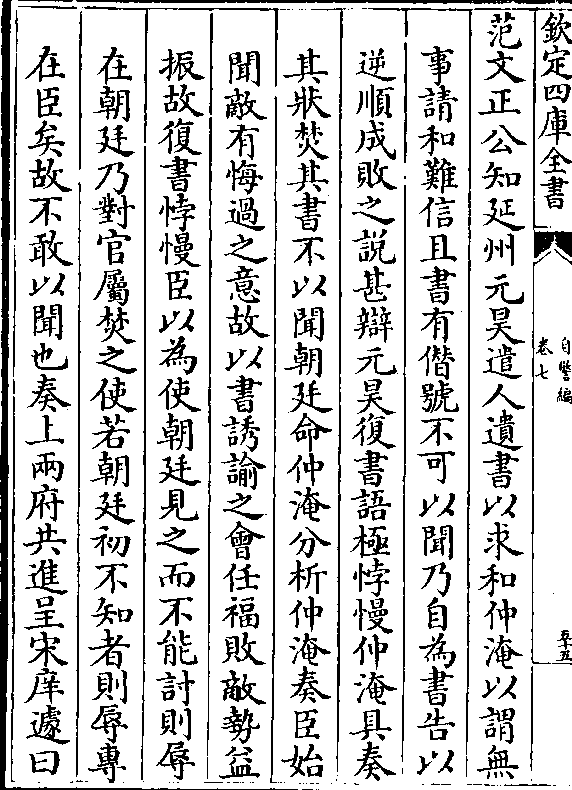 欽定四庫全書
自警編
卷七
五十五
范文正公知延州元昊遣人遺書以求和仲淹以謂無
事請和難信且書有僭號不可以聞乃自為書告以
逆順成敗之説甚辯元昊復書語極悖慢仲淹具奏
其狀焚其書不以聞朝廷命仲淹分析仲淹奏臣始
聞敵有悔過之意故以書誘諭之會任福敗敵勢益
振故復書悖慢臣以為使朝廷見之而不能討則辱
在朝廷乃對官屬焚之使若朝廷初不知者則辱專
在臣矣故不敢以聞也奏上兩府共進呈宋庠遽曰